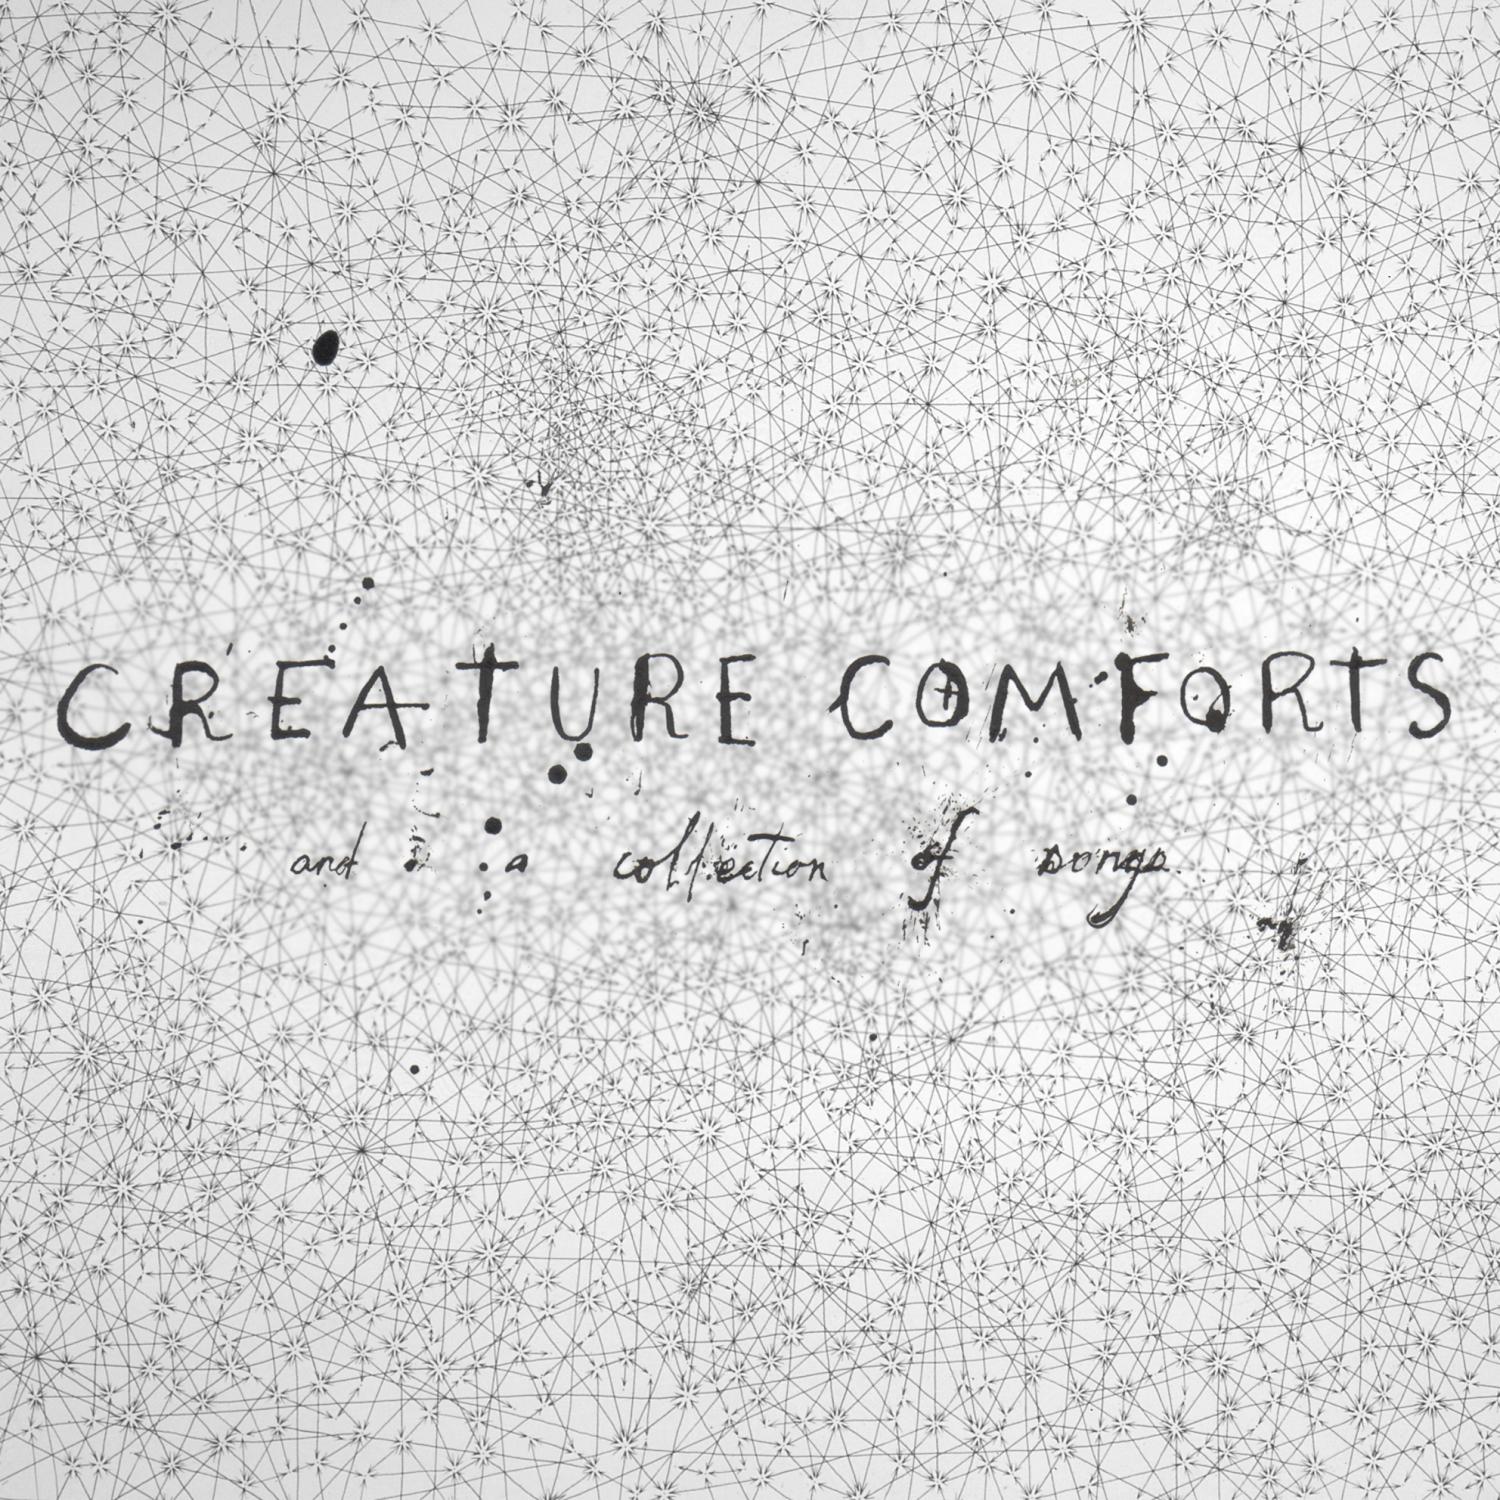 CREATURE COMFORTS
and a collection of songs.